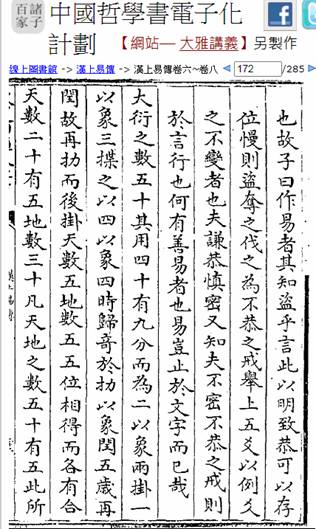 諸子百家
中國哲學書電子化計劃
【網站— 大雅講義】另製作
線上圖書館 -> 漢上易傳 -> 漢上易傳卷六~卷八 172 /285
也故子曰作易者其知盜乎言此以明致恭可以存
位慢則盜奪之伐之為不恭之戒舉上五爻以例久
之不變者也夫謙恭慎密又知夫不密不恭之戒則
於言行也何有善易者也易豈止於文字而已哉
大衍之數五十其用四十有九分而為二以象兩掛一
以象三揲之以四以象四時歸奇於扐以象閏五歲再
閏故再扐而後掛天數五地數五五位相得而各有合
天數二十有五地數三十凡天地之數五十有五此所